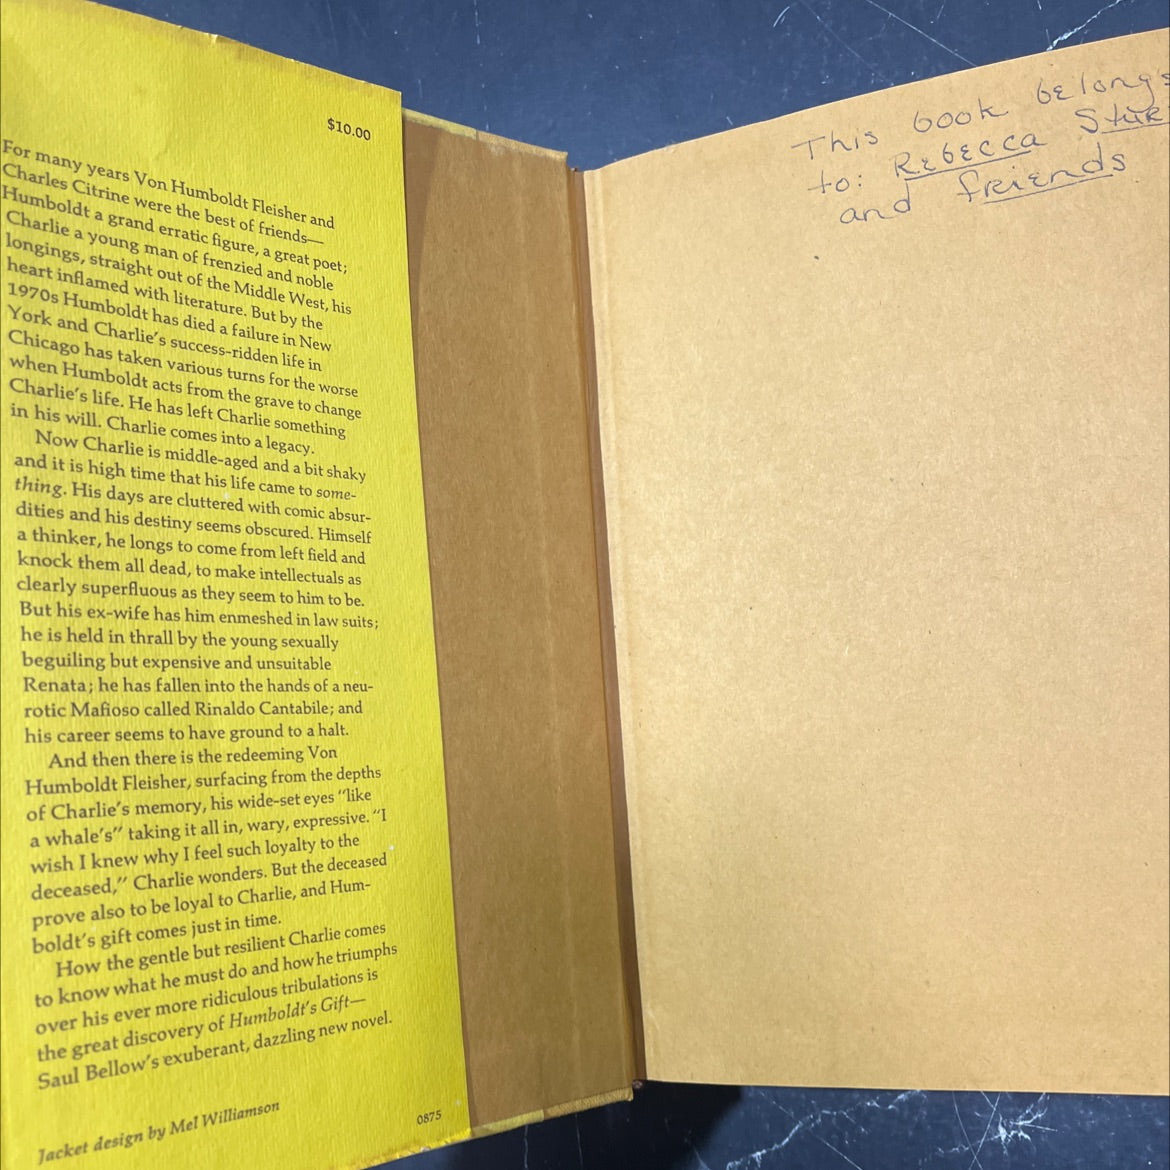 $10.00
For many years Von Humboldt Fleisher and
Charles Citrine were the best of friends—
Humboldt a grand erratic figure, a great poet;
Charlie a young man of frenzied and noble
longings, straight out of the Middle West, his
heart inflamed with literature. But by the
1970s Humboldt has died a failure in New
York and Charlie's success-ridden life in
Chicago has taken various turns for the worse
when Humboldt acts from the grave to change
Charlie's life. He has left Charlie something
in his will. Charlie comes into a legacy.
Now Charlie is middle-aged and a bit shaky
and it is high time that his life came to some-
thing. His days are cluttered with comic absur-
dities and his destiny seems obscured. Himself
a thinker, he longs to come from left field and
knock them all dead, to make intellectuals as
clearly superfluous as they seem to him to be.
But his ex-wife has him enmeshed in law suits;
he is held in thrall by the young sexually
beguiling but expensive and unsuitable
Renata; he has fallen into the hands of a neu-
rotic Mafioso called Rinaldo Cantabile; and
his career seems to have ground to a halt.
And then there is the redeeming Von
Humboldt Fleisher, surfacing from the depths
of Charlie's memory, his wide-set eyes "like
a whale's" taking it all in, wary, expressive. "I
wish I knew why I feel such loyalty to the
deceased," Charlie wonders. But the deceased
prove also to be loyal to Charlie, and Hum-
boldt's gift comes just in time.
How the gentle but resilient Charlie comes
to know what he must do and how he triumphs
over his ever more ridiculous tribulations is
the great discovery of Humboldt's Gift—
Saul Bellow's exuberant, dazzling new novel.
Jacket design by Mel Williamson
0875
This book belongs
to: Rebecca
and friends